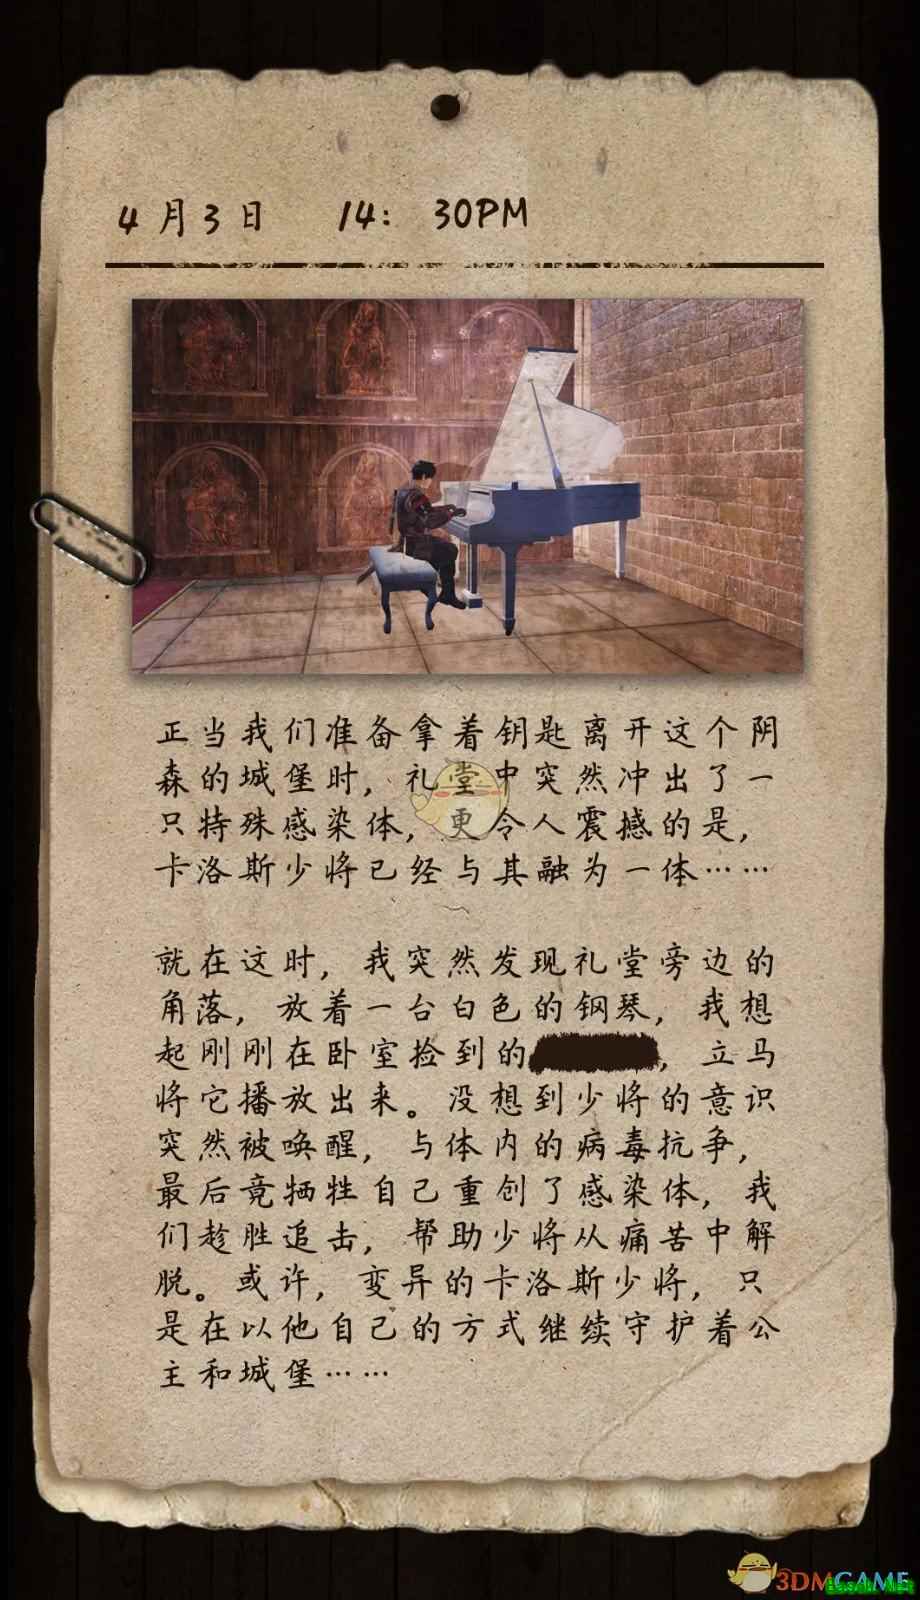 4月3日 14: 30PM
正当我们准备拿着钥匙离开这个阴
森的城堡时，礼堂中突然冲出了一
只特殊感染体，更令人震撼的是，
卡洛斯少将已经与其融为一体……
就在这时，我突然发现礼堂旁边的
角落，放着一台白色的钢琴，我想
起刚刚在卧室捡到的，立马
将它播放出来。没想到少将的意识
突然被唤醒，与体内的病毒抗争，
最后竟牺牲自己重创了感染体，我
们趁胜追击，帮助少将从痛苦中解
脱。或许，变异的卡洛斯少将，只
是在以他自己的方式继续守护着公
主和城堡……
3DMGAME